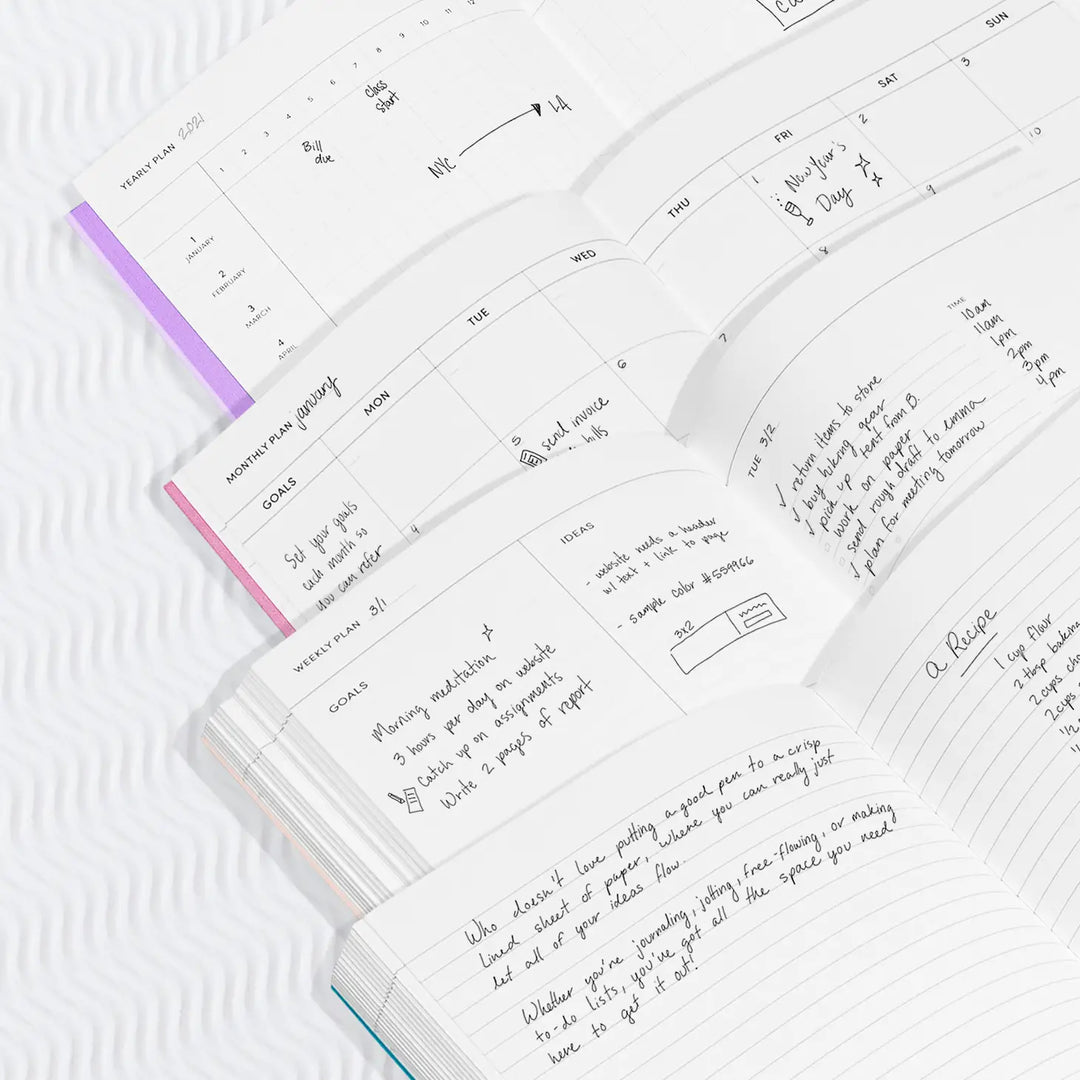 YEARLY PLAN 2021
1 2 3 4 5 6 7 8 9 10 11 12
Class
start
Bill
due
NYC
LA
1
JANUARY
2
FEBRUARY
3
MARCH
4
APRIL
THU
FRI
SAT
SUN
1
2
3
New Year's
Day
8
9
10
MONTHLY PLAN january
GOALS
MON
TUE
WED
Set your goals
each month so
you can refer
4
5
send invoice
bills
6
7
WEEKLY PLAN 3/1
GOALS
Morning meditation
3 hours per day on website
Catch up on assignments
Write 2 pages of report
IDEAS
- website needs a header
w/ text + link to page
- sample color #559966
3x2
TUE 3/2
TIME
✓ return items to store 10am
✓ buy hiking gear 11am
✓ pick up tent from B. 1pm
work on paper 2pm
send rough draft to emma 3pm
✓ plan for meeting tomorrow 4pm
Who doesn't love putting a good pen to a crisp
lined sheet of paper, where you can really just
let all of your ideas flow.
Whether you're journaling, jotting, free-flowing, or making
to-do lists, you've got all the space you need
here to get it out!
a Recipe
1 cup flour
2 tbsp baking
2 cups
2 cups
1/2